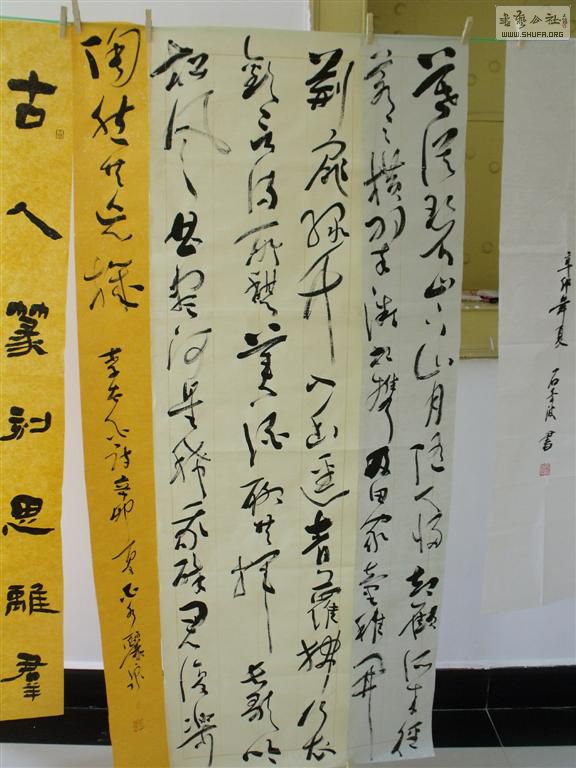 辛卯年夏
書
暮從碧山下山月隨人歸卻顧所來徑
蒼々橫翠微相攜及田家童稚開
荊扉綠竹入幽逕青蘿拂行衣
歡言得所憩美酒聊共揮長歌吟
松風曲盡河星稀我醉君復樂
陶然共忘機
李太白詩辛卯夏
古人篆刻思離群
書藝公社
WWW.SHUFA.ORG